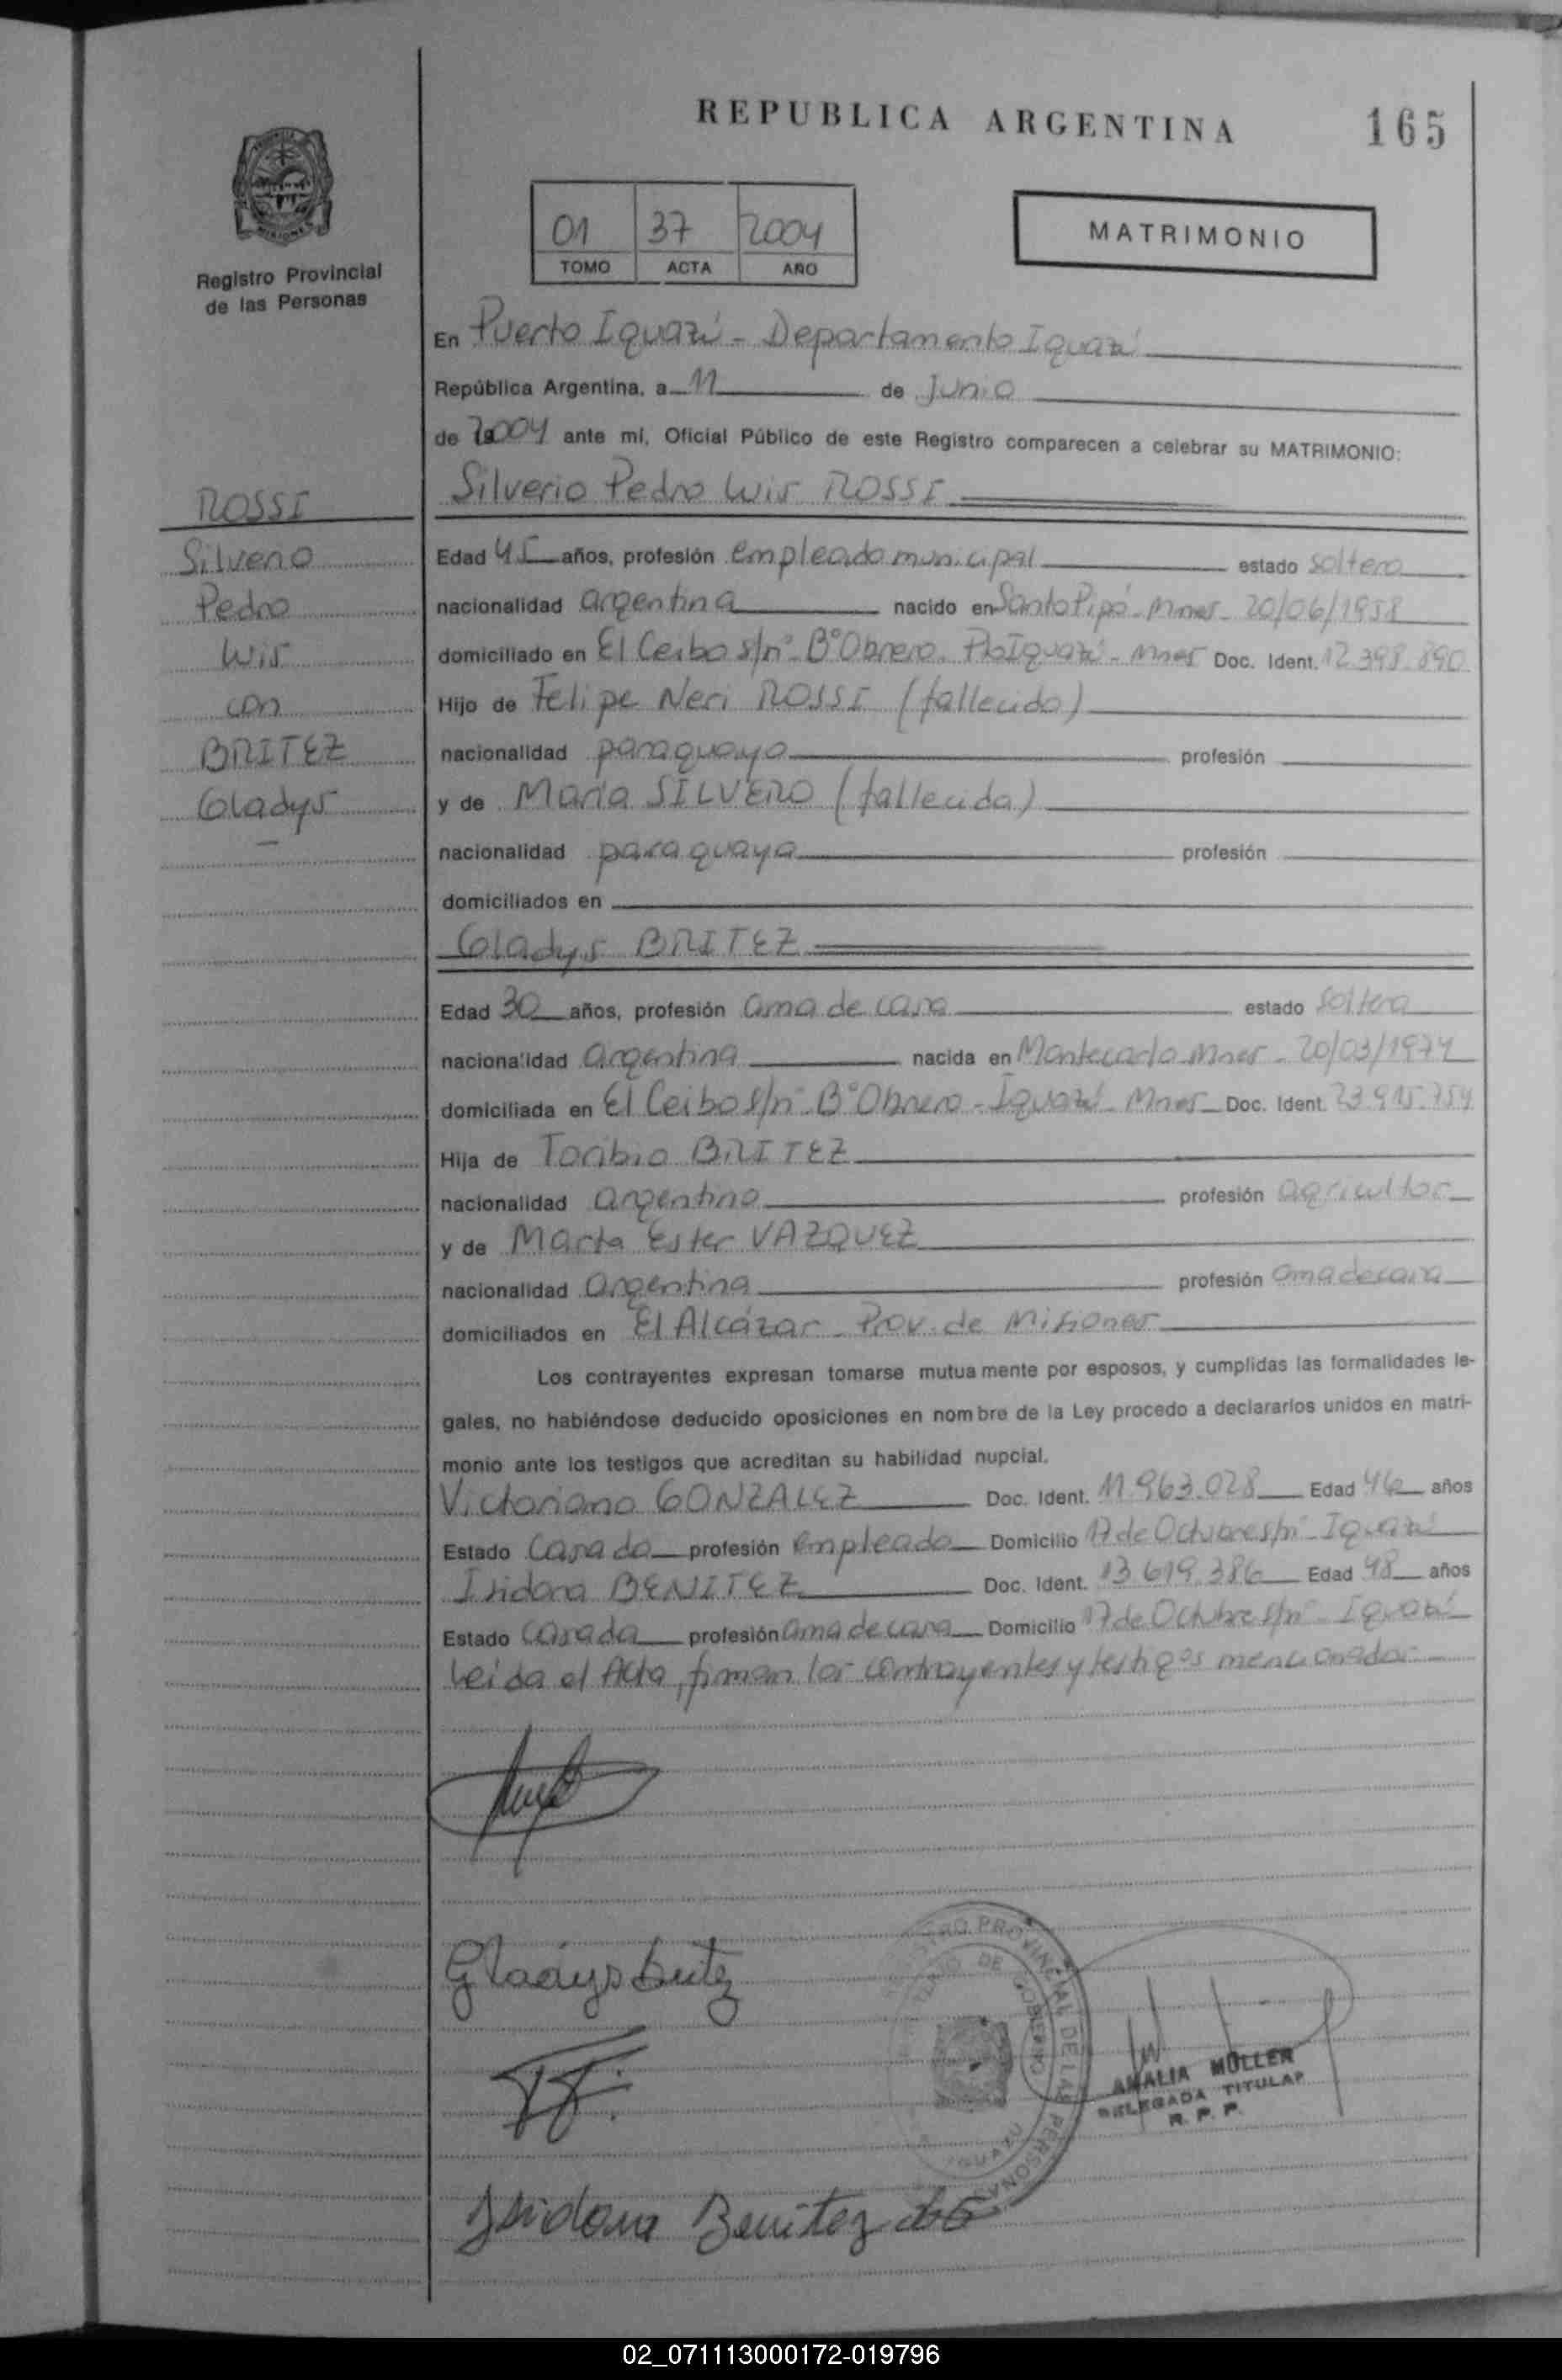 REPUBLICA ARGENTINA
165
01 37 2004
TOMO ACTA AÑO
MATRIMONIO
MISIONES
Registro Provincial
de las Personas
En Puerto Iguazú - Departamento Iguazú
República Argentina, a 11 de Junio
de 2004 ante mí, Oficial Público de este Registro comparecen a celebrar su MATRIMONIO:
Silverio Pedro Luis ROSSI
ROSSI
Silverio
Pedro
Luis
con
BRITEZ
Gladys
Edad 45 años, profesión empleado municipal estado soltero
nacionalidad argentina nacido en Santo Pipó - Mnes - 20/06/1958
domiciliado en El Ceibo s/nº Bº Obrero - Pto Iguazú - Mnes Doc. Ident. 12.398.890
Hijo de Felipe Neri ROSSI (fallecido)
nacionalidad paraguayo profesión
y de María SILVERO (fallecida)
nacionalidad paraguaya profesión
domiciliados en
Gladys BRITEZ
Edad 30 años, profesión ama de casa estado soltera
nacionalidad argentina nacida en Montecarlo Mnes - 20/03/1974
domiciliada en El Ceibo s/nº Bº Obrero - Iguazú - Mnes Doc. Ident. 23.915.754
Hija de Toribio BRITEZ
nacionalidad argentino profesión agricultor
y de Marta Ester VAZQUEZ
nacionalidad argentina profesión ama de casa
domiciliados en El Alcázar - Prov. de Misiones
Los contrayentes expresan tomarse mutuamente por esposos, y cumplidas las formalidades le-
gales, no habiéndose deducido oposiciones en nombre de la Ley procedo a declararlos unidos en matri-
monio ante los testigos que acreditan su habilidad nupcial.
Victoriano GONZALEZ Doc. Ident. 11.963.028 Edad 46 años
Estado casado profesión empleado Domicilio 17 de Octubre s/nº Iguazú
Isidora BENITEZ Doc. Ident. 13.619.386 Edad 48 años
Estado casada profesión ama de casa Domicilio 17 de Octubre s/nº - Iguazú
Leída el Acta, firman los contrayentes y testigos mencionados
Gladys Britez
REGISTRO PROVINCIAL DE LAS PERSONAS
DE GOBIERNO
IGUAZU
AMALIA MÜLLER
DELEGADA TITULAR
R. P. P.
Isidora Benitez de G
02_071113000172-019796